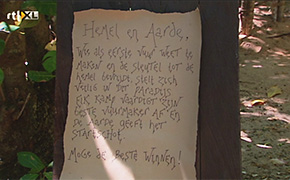 rtl XL
Hemel en Aarde,
Wie als eerste vuur weet te
maken en de sleutel tot de
hemel bevrijdt, stelt zich
veilig in het paradijs
Elk kamp vaardigt zijn
beste vuurmaker af en
de Aarde geeft het
startschot
Moge de beste winnen!